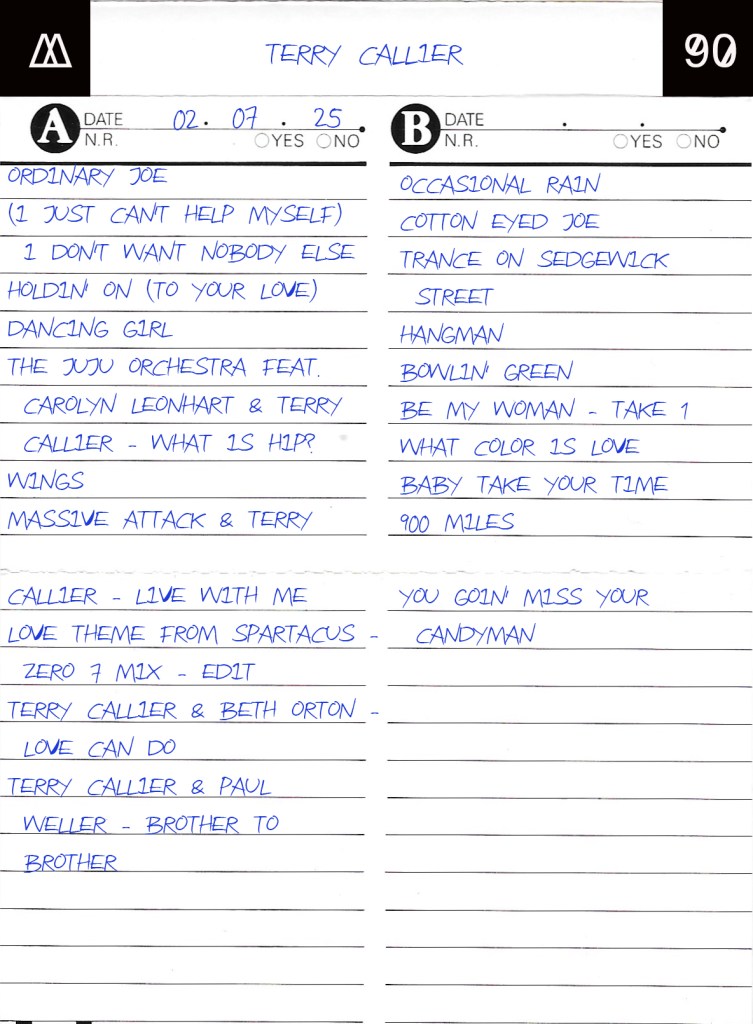 TERRY CALLIER
90
A DATE 02. 07. 25
N.R. YES NO
ORDINARY JOE
(I JUST CAN'T HELP MYSELF)
I DON'T WANT NOBODY ELSE
HOLDIN' ON (TO YOUR LOVE)
DANCING GIRL
THE JUJU ORCHESTRA FEAT.
CAROLYN LEONHART & TERRY
CALLIER - WHAT IS HIP?
WINGS
MASSIVE ATTACK & TERRY
CALLIER - LIVE WITH ME
LOVE THEME FROM SPARTACUS -
ZERO 7 MIX - EDIT
TERRY CALLIER & BETH ORTON -
LOVE CAN DO
TERRY CALLIER & PAUL
WELLER - BROTHER TO
BROTHER
B DATE . .
N.R. YES NO
OCCASIONAL RAIN
COTTON EYED JOE
TRANCE ON SEDGEWICK
STREET
HANGMAN
BOWLIN' GREEN
BE MY WOMAN - TAKE 1
WHAT COLOR IS LOVE
BABY TAKE YOUR TIME
900 MILES
YOU GOIN' MISS YOUR
CANDYMAN